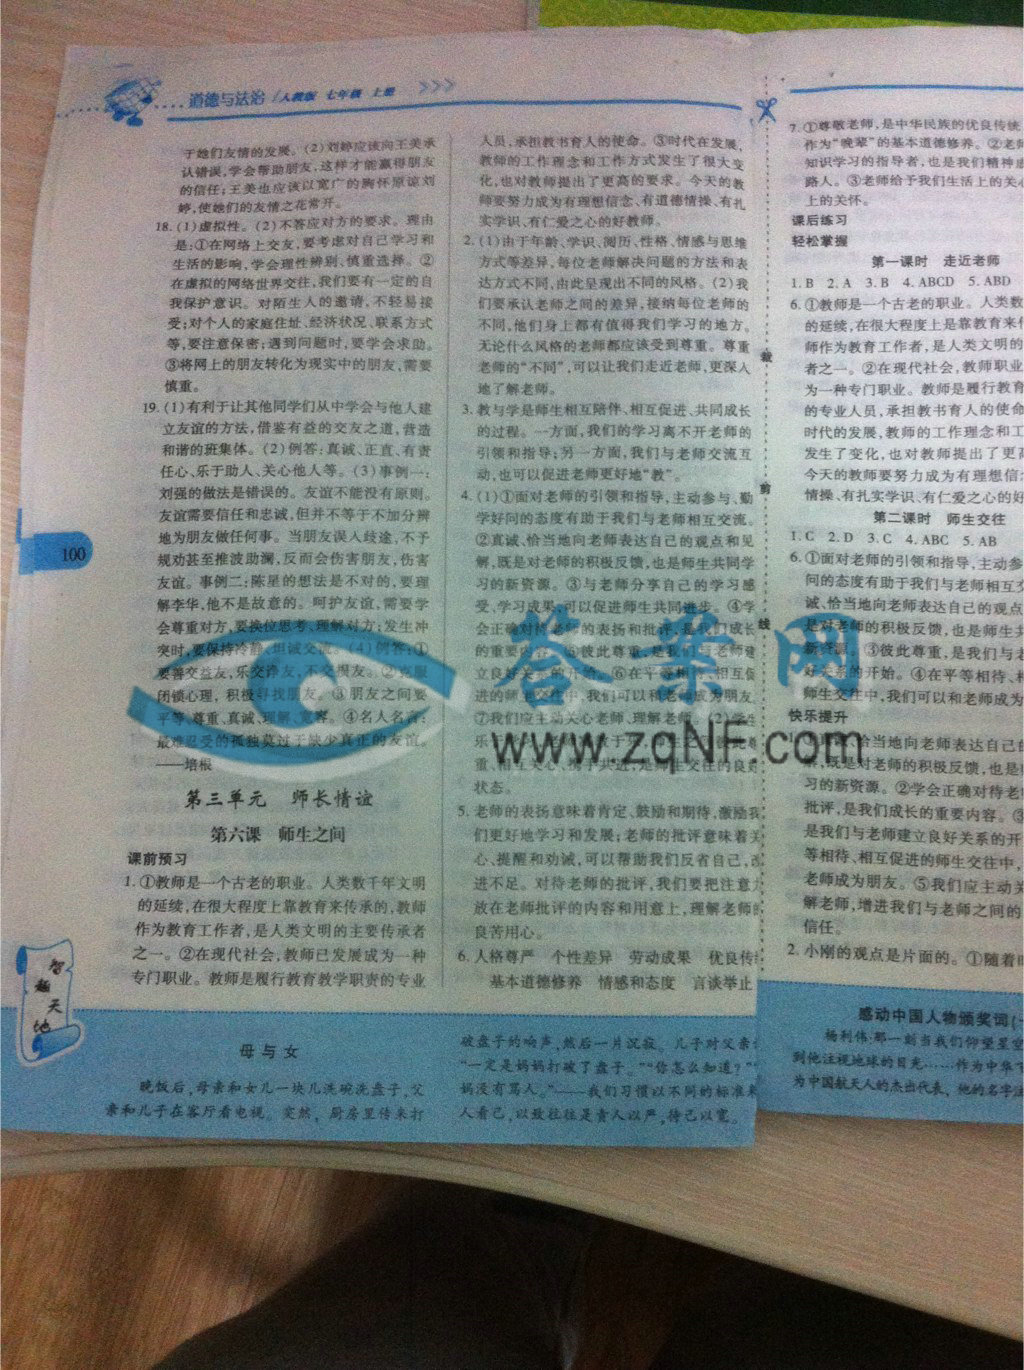 道德与法治 / 人教版 七年级 上册
于她们友情的发展。(2)刘婷应该向王美承
认错误,学会帮助朋友,这样才能赢得朋友
的信任;王美也应该以宽广的胸怀原谅刘
婷,使她们的友情之花常开。
18.(1)虚拟性。(2)不答应对方的要求。理由
是:①在网络上交友,要考虑对自己学习和
生活的影响,学会理性辨别、慎重选择。②
在虚拟的网络世界交往,我们要有一定的自
我保护意识。对陌生人的邀请,不轻易接
受;对个人的家庭住址、经济状况、联系方式
等,要注意保密;遇到问题时,要学会求助。
③将网上的朋友转化为现实中的朋友,需要
慎重。
19.(1)有利于让其他同学们从中学会与他人建
立友谊的方法,借鉴有益的交友之道,营造
和谐的班集体。(2)例答:真诚、正直、有责
任心、乐于助人、关心他人等。(3)事例一:
刘强的做法是错误的。友谊不能没有原则。
友谊需要信任和忠诚,但并不等于不加分辨
地为朋友做任何事。当朋友误入歧途,不予
规劝甚至推波助澜,反而会伤害朋友,伤害
友谊。事例二:陈星的想法是不对的,要理
解李华,他不是故意的。呵护友谊,需要学
会尊重对方,要换位思考、理解对方;发生冲
突时,要保持冷静、坦诚交流。(4)例答:①
要善交益友、乐交诤友、不交损友。②克服
闭锁心理,积极寻找朋友。③朋友之间要
平等、尊重、真诚、理解、宽容。④名人名言:
最难忍受的孤独莫过于缺少真正的友谊。
——培根
第三单元 师长情谊
第六课 师生之间
课前预习
1.①教师是一个古老的职业。人类数千年文明
的延续,在很大程度上靠教育来传承的,教师
作为教育工作者,是人类文明的主要传承者
之一。②在现代社会,教师已发展成为一种
专门职业。教师是履行教育教学职责的专业
人员,承担教书育人的使命。③时代在发展,
教师的工作理念和工作方式发生了很大变
化,也对教师提出了更高的要求。今天的教
师要努力成为有理想信念、有道德情操、有扎
实学识、有仁爱之心的好教师。
2.(1)由于年龄、学识、阅历、性格、情感与思维
方式等差异,每位老师解决问题的方法和表
达方式不同,由此呈现出不同的风格。(2)我
们要承认老师之间的差异,接纳每位老师的
不同,他们身上都有值得我们学习的地方。
无论什么风格的老师都应该受到尊重。尊重
老师的“不同”,可以让我们走近老师,更深入
地了解老师。
3.教与学是师生相互陪伴、相互促进、共同成长
的过程。一方面,我们的学习离不开老师的
引领和指导;另一方面,我们与老师交流互
动,也可以促进老师更好地“教”。
4.(1)①面对老师的引领和指导,主动参与、勤
学好问的态度有助于我们与老师相互交流。
②真诚、恰当地向老师表达自己的观点和见
解,既是对老师的积极反馈,也是师生共同学
习的新资源。③与老师分享自己的学习感
受、学习成果,可以促进师生共同进步。④学
会正确对待老师的表扬和批评,是我们成长
的重要内容。⑤彼此尊重,是我们与老师建
立良好关系的开始。⑥在平等相待、相互促
进的师生交往中,我们可以和老师成为朋友。
⑦我们应主动关心老师、理解老师。(2)学生
乐
重、相互关心、携手共进,是师生交往的良好
状态。
5.老师的表扬意味着肯定、鼓励和期待,激励我
们更好地学习和发展;老师的批评意味着关
心、提醒和劝诫,可以帮助我们反省自己,改
进不足。对待老师的批评,我们要把注意力
放在老师批评的内容和用意上,理解老师的
良苦用心。
6.人格尊严 个性差异 劳动成果 优良传统
基本道德修养 情感和态度 言谈举止
裁
剪
线
7.①尊敬老师,是中华民族的优良传统
作为“晚辈”的基本道德修养。②老师
知识学习的指导者,也是我们精神成
路人。③老师给予我们生活上的关心
上的关怀。
课后练习
轻松掌握
第一课时 走近老师
1.B 2.A 3.B 4.ABCD 5.ABD
6.①教师是一个古老的职业。人类数
的延续,在很大程度上是靠教育来传
师作为教育工作者,是人类文明的
者之一。②在现代社会,教师职业
为一种专门职业。教师是履行教育
的专业人员,承担教书育人的使命
时代的发展,教师的工作理念和工
发生了变化,也对教师提出了更高
今天的教师要努力成为有理想信
情操、有扎实学识、有仁爱之心的好
第二课时 师生交往
1.C 2.D 3.C 4.ABC 5.AB
6.①面对老师的引领和指导,主动参
问的态度有助于我们与老师相互交
诚、恰当地向老师表达自己的观点
是对老师的积极反馈,也是师生共
新资源。③彼此尊重,是我们与老
好关系的开始。④在平等相待、相
师生交往中,我们可以和老师成为
快乐提升
恰当地向老师表达自己的
解,既是对老师的积极反馈,也是
习的新资源。②学会正确对待老
批评,是我们成长的重要内容。③
是我们与老师建立良好关系的开
等相待、相互促进的师生交往中,
老师成为朋友。⑤我们应主动关
解老师,增进我们与老师之间的
信任。
2.小刚的观点是片面的。①随着时
100
智趣天地
母与女
晚饭后,母亲和女儿一块儿洗碗洗盘子,父
亲和儿子在客厅看电视。突然,厨房里传来打
破盘子的响声,然后一片沉寂。儿子对父亲
“一定是妈妈打破了盘子。”“你怎么知道?”“
妈没有骂人。”——我们习惯以不同的标准来
人看己,以致往往是责人以严,待己以宽。
感动中国人物颁奖词(一
杨利伟·那一刻当我们仰望星空
到他注视地球的目光……作为中华
为中国航天人的杰出代表,他的名字
答案网
www.zqNF.com